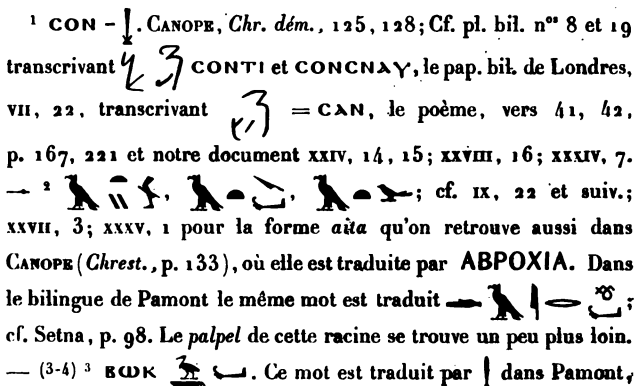 ¹ ⲤⲞⲚ – . CANOPE, Chr. dém., 125, 128; Cf. pl. bil. nᵒˢ 8 et 19
transcrivant ⲤⲞⲚⲦⲒ et ⲤⲞⲚⲤⲚⲀⲨ, le pap. bil. de Londres,
VII, 22, transcrivant = ⲤⲀⲚ, le poème, vers 41, 42,
p. 167, 221 et notre document XXIV, 14, 15; XXVIII, 16; XXXIV, 7.
— ² , , ; cf. IX, 22 et suiv.;
XXVII, 3; XXXV, 1 pour la forme aita qu'on retrouve aussi dans
CANOPE (Chrest., p. 133), où elle est traduite par ΑΒΡΟΧΙΑ. Dans
le bilingue de Pamont le même mot est traduit ;
cf. Setna, p. 98. Le palpel de cette racine se trouve un peu plus loin.
— (3-4) ³ ⲂⲰⲔ . Ce mot est traduit par dans Pamont,